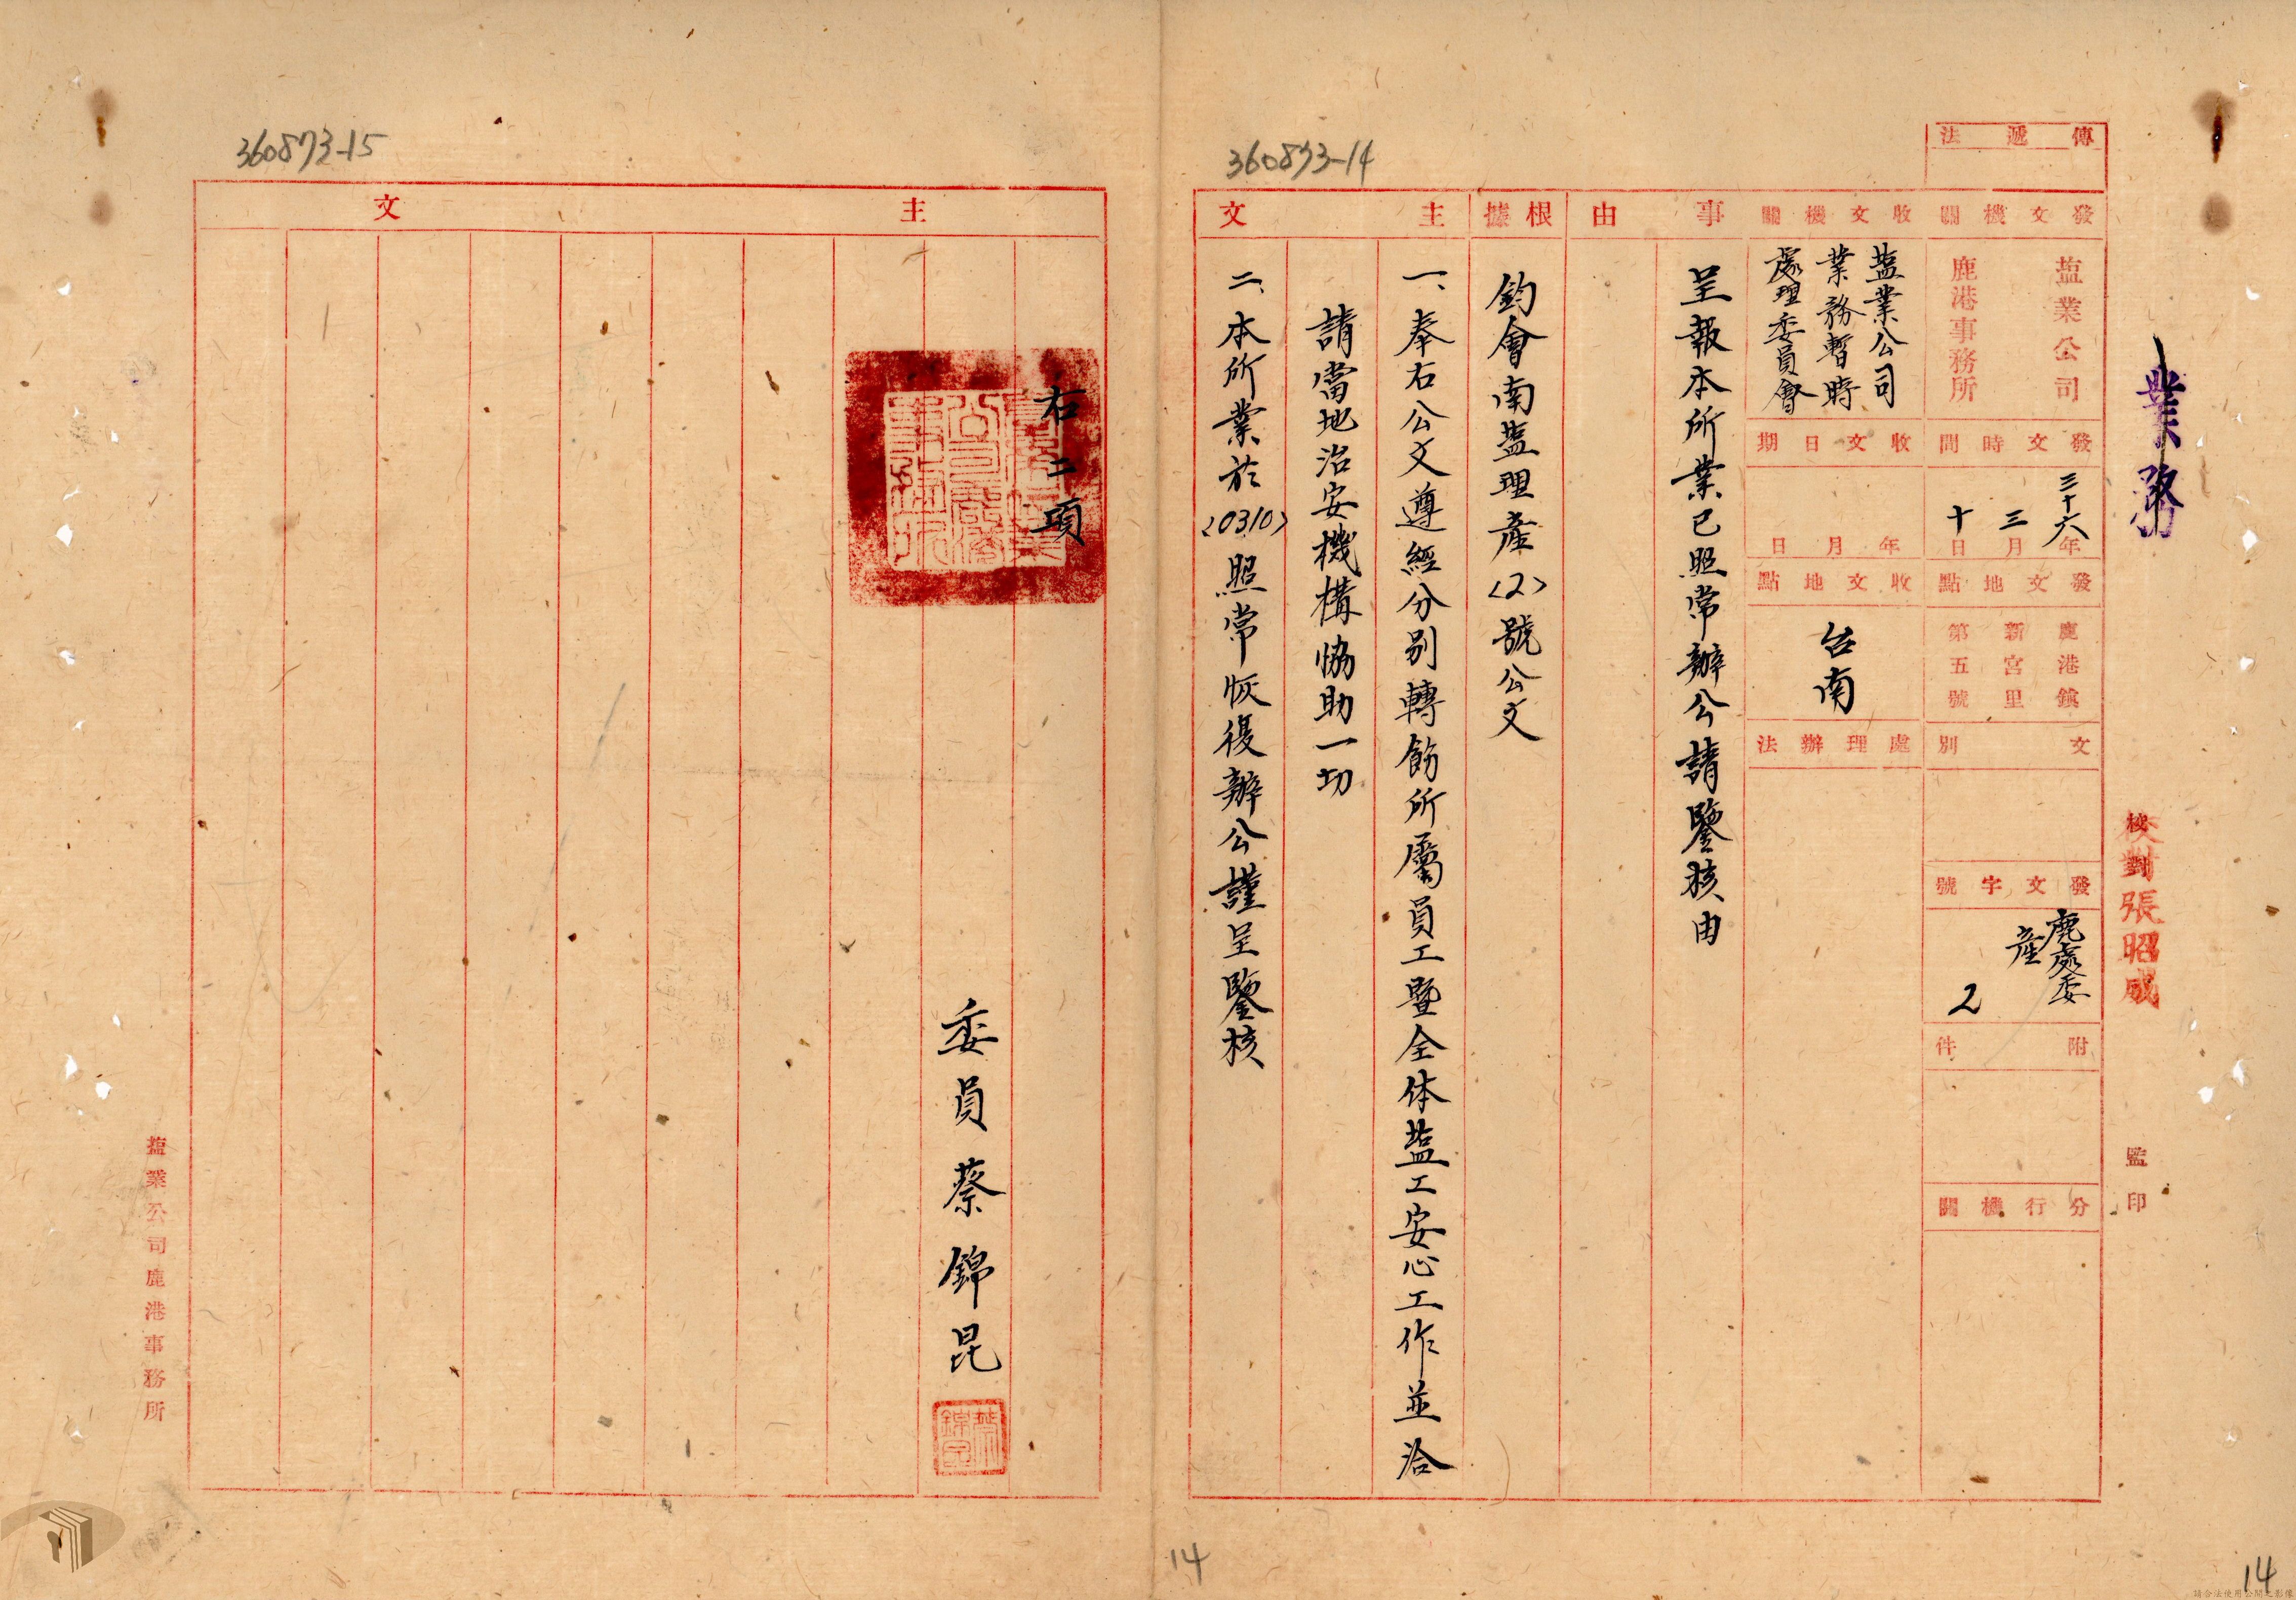 業務
校對
校對張昭成
監印
傳遞法
發文機關
塩業公司
鹿港事務所
發文時間
三十六年
三月
十日
發文地點
鹿港鎮
新宮里
第五號
文別
發文字號
鹿處委
產
2
附件
分行機關
收文機關
塩業公司
業務暫時
處理委員會
收文日期
年月日
收文地點
台南
處理辦法
事由
呈報本所業已照常辦公請鑒核由
根據
鈞會南塩理產〈2〉號公文
主文
一、奉右公文遵經分別轉飭所屬員工暨全体塩工安心工作並洽
請當地治安機構協助一切
二、本所業於〈0310〉照常恢復辦公謹呈鑒核
360873-14
14
主文
右二項
委員蔡錦昆
蔡錦昆
360873-15
塩業公司鹿港事務所
14
請合法使用公開之影像